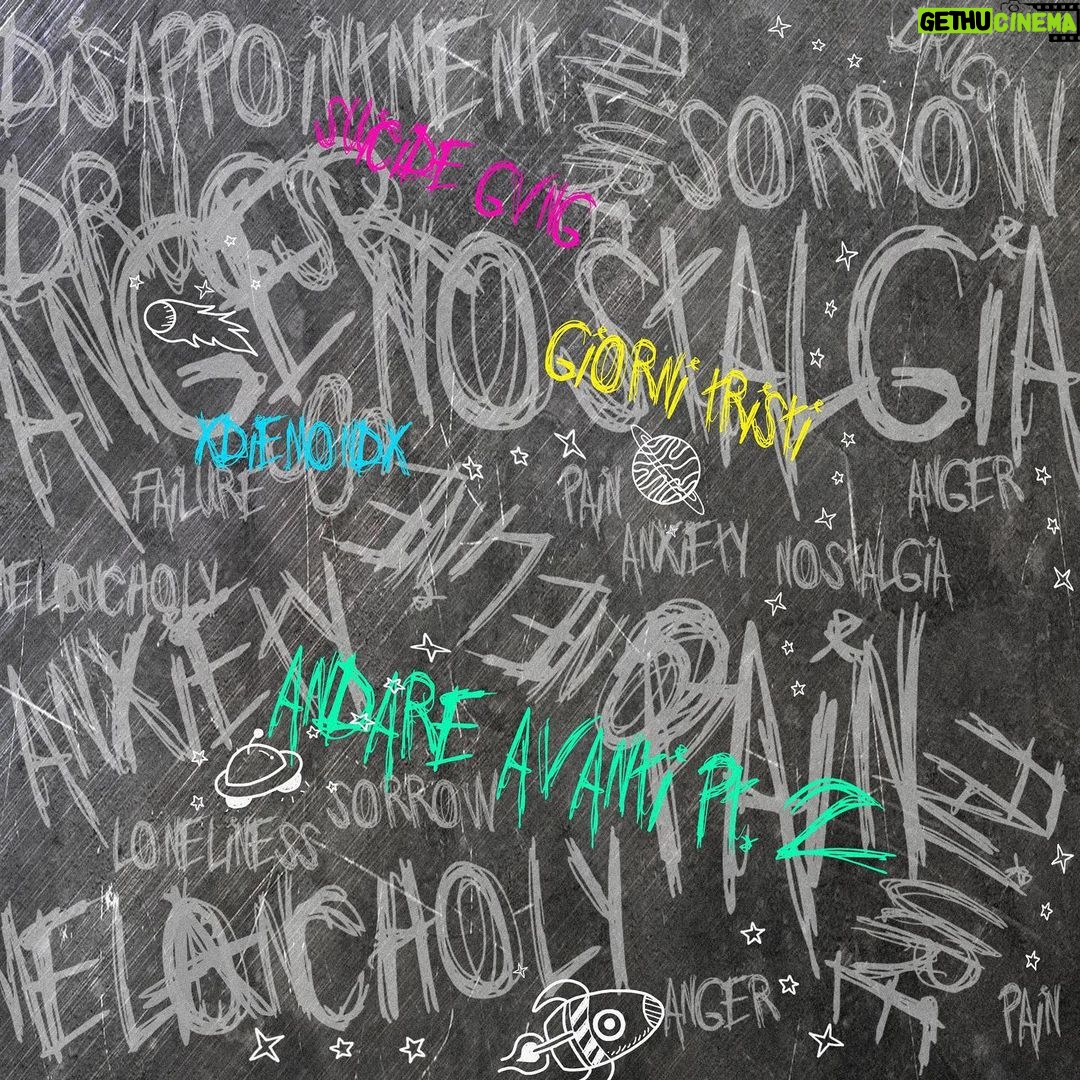 GETHUCINEMA
DiSAPPOiNTMENT
SORROW
SUiCiDE GVNG
DRUGS
ANGER
NOSTALGiA
GiORNi TRiSTi
XDiENOIIDX
FAiLURE
PAiN
ANGER
ANXiETY
NOSTALGiA
MELANCHOLY
ANXiETY
PAiN
ANDARE AVANTi Pt. 2
SORROW
LONELiNESS
MELANCHOLY
ANGER
PAiN